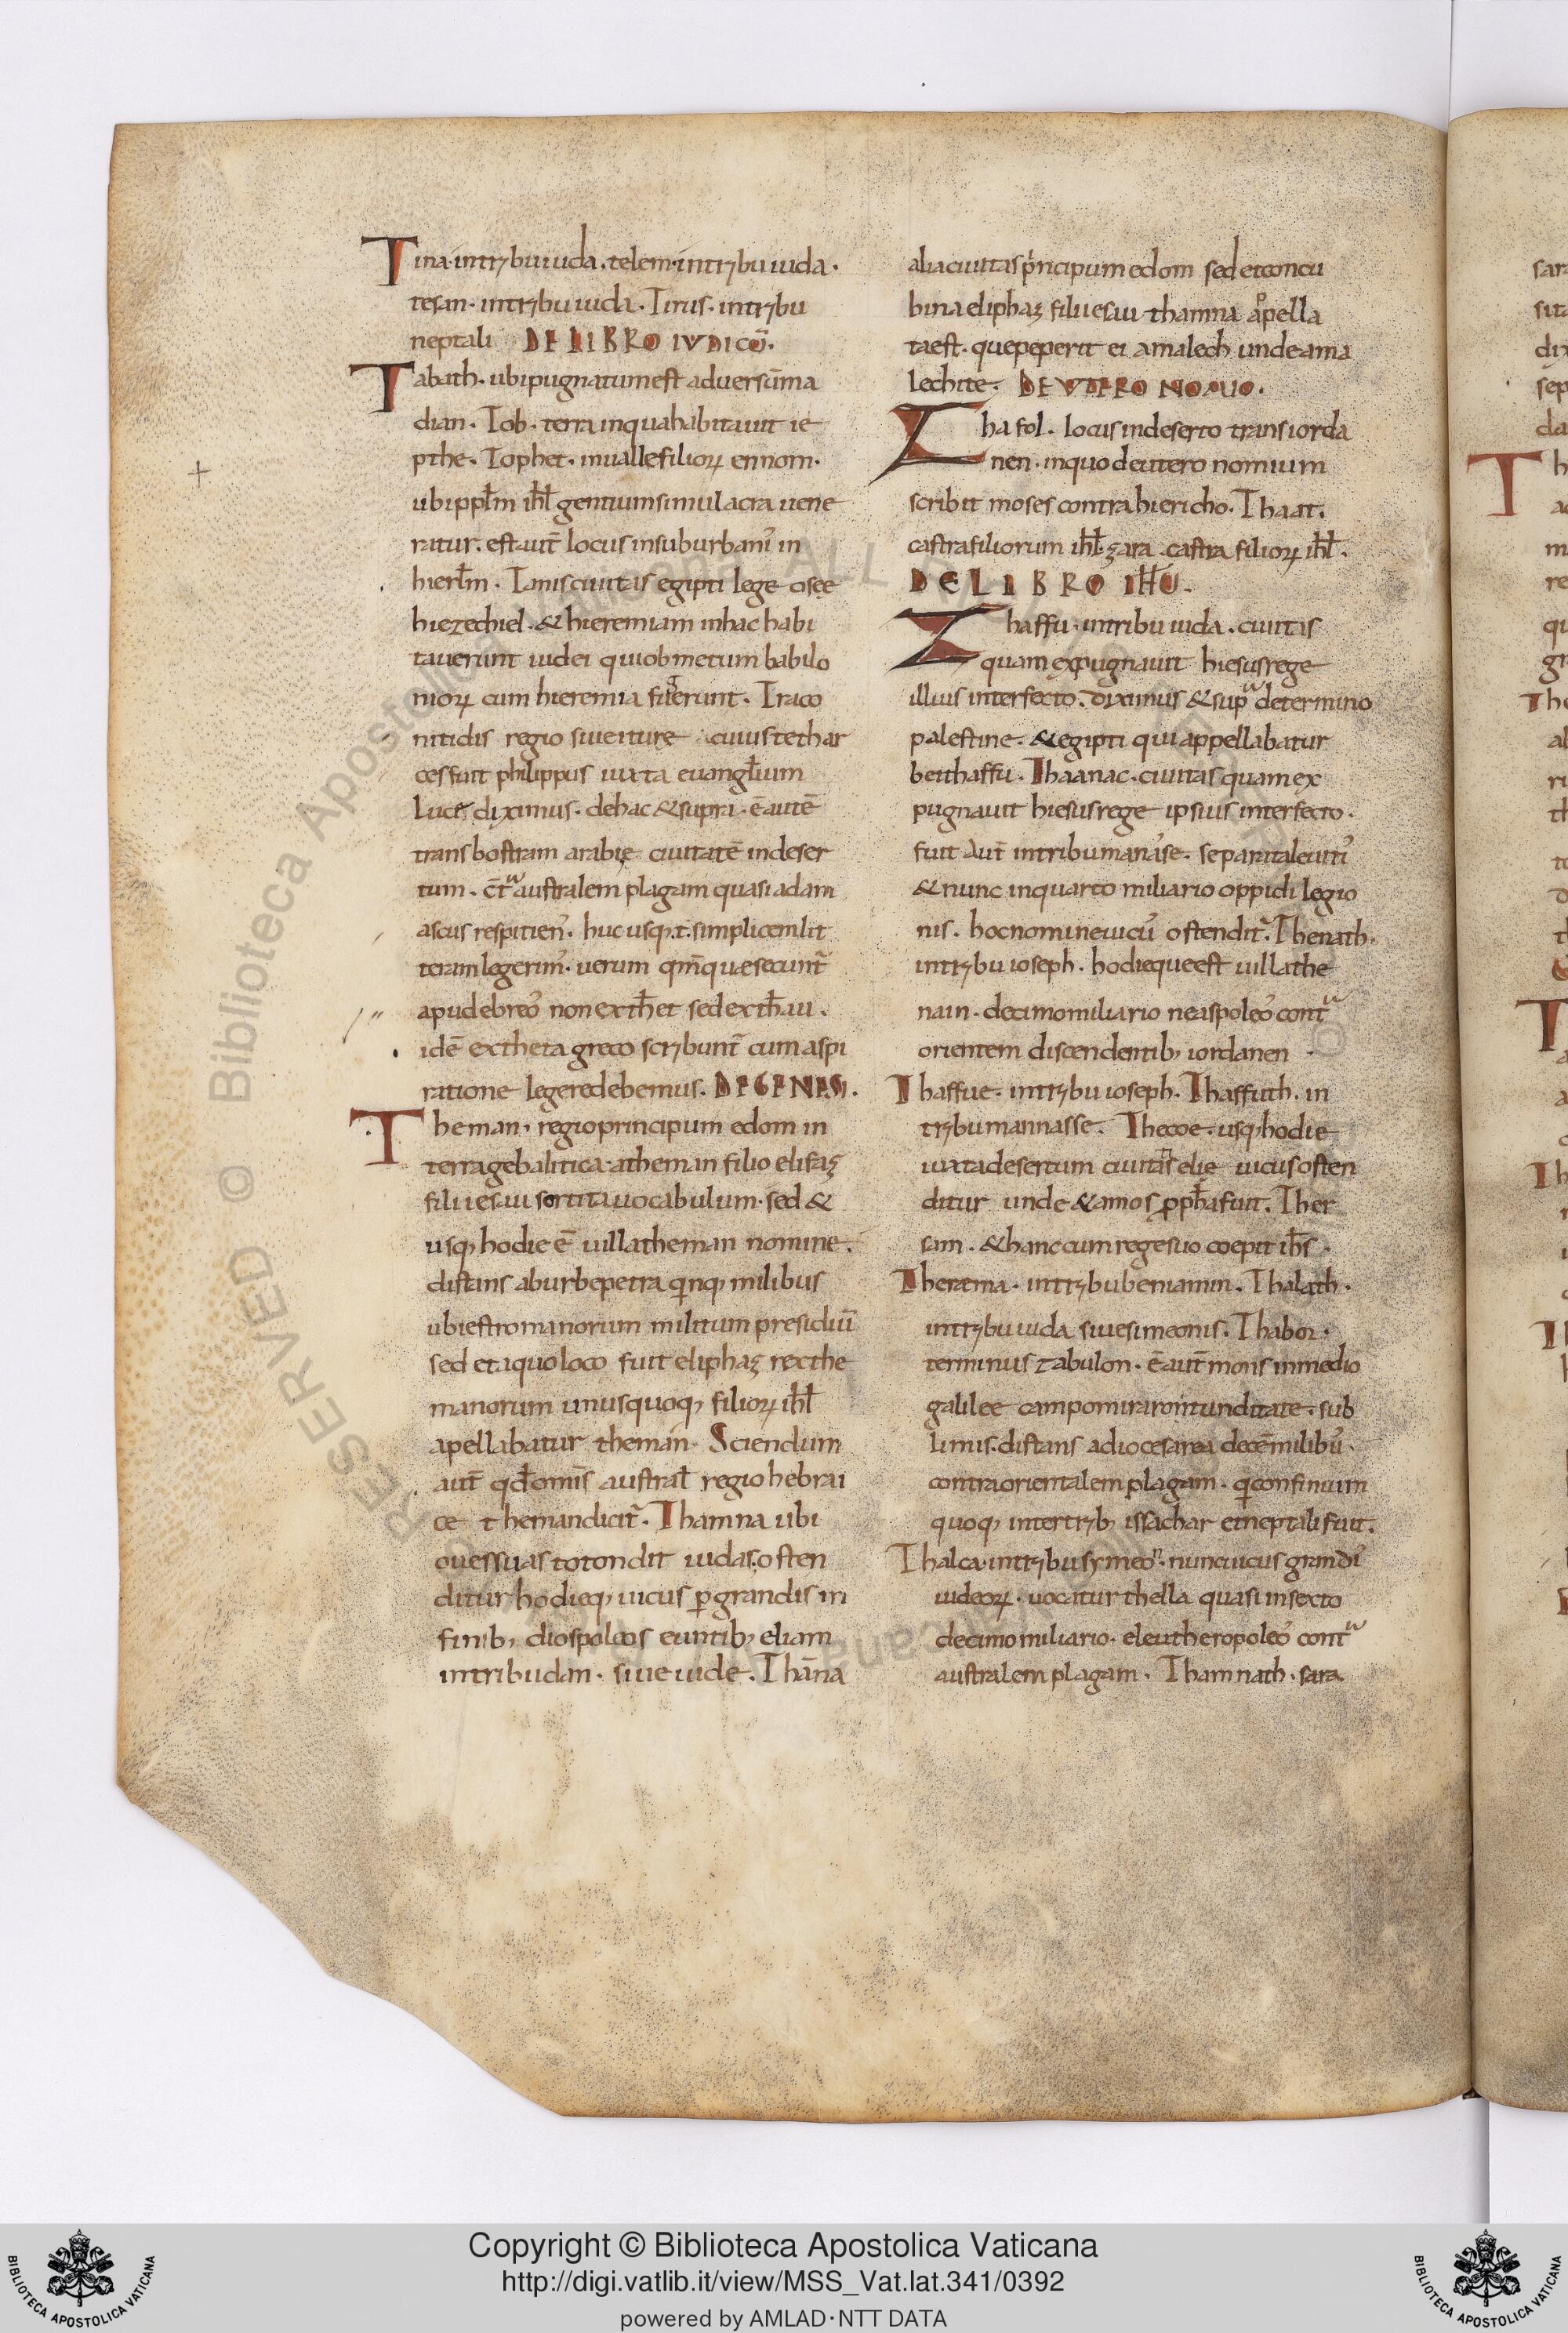 Tina·intribuiuda·telem·intribuiuda·
tesan·intribuiuda·Tirus·intribu
neptali DE LIBRO IUDICŪ·
Tabath·ubipugnatumest adversūma
dian·Tob·terra inquahabitauit ie
pthe·Tophet·inuallefilioꝝ ennom·
ubi ppl̄m ihl̄ gentium simulacra uene
ratur·est aut̄ locus insuburbaniˀ in
hierl̄m·Tanis ciuitas egipti lege osee
hiezechiel·& hieremiam inhac habi
tauerunt iudei quiobmetum babilo
nioꝝ cum hieremia fugerunt·Traco
nitidis regio siue iture cuiustethar
ces fuit philippus iuxta euangl̄ium
Lucę diximus·dehac & supra·ē autē
trans bostram arabię ciuitatē indeser
tum·c̄tᵃ australem plagam quasi adam
ascus respitienˀ·huc usq;·t·simplicem lit
teram legerimˀ·uerum qm̄ quae secunt̄
apud ebreoˀ non exth̄et sed exth̄au·
idē extheta greco scribunt̄ cum aspi
ratione legere debemus·DE GENESI·
Theman·regio principum edom in
terra gebalitica·atheman filio elifaz
filii esau sortita uocabulum·sed &
usq; hodie ē uilla theman nomine·
distans aburbe petra qinq; milibus
ubi est romanorum militum presidiū
sed et aquo loco fuit eliphaz rex the
manorum unusquoq; filioꝝ ihl̄
apellabatur theman·Sciendum
aut̄ qd̄ omīs austral̄ regio hebrai
ce themandicit̄·Thamna ubi
oues suas totondit iudas·osten
ditur hodieq; uicus pgrandis in
finib; diospoleos euntib; eliam
intribu dan·siue iude·Thāna
alia ciuitas pⁱncipum edom sed et concu
bina eliphaz filii esau thamna apella
ta est·que peperit ei amalech unde ama
lechite·DEUTERONOMIO·
Thafol·locus indeserto trans iorda
nen·inquo deuteronomium
scribit moses contra hiericho·Thaat·
castra filiorum ihl̄·zara·castra filioꝝ ihl̄·
DE LIBRO IH̄U·
Thaffu·intribu iuda·ciuitas
quam expugnauit hiesus rege
illius interfecto·Diximus & supᵃ determino
palestine·& egipti qui appellabatur
beithaffu·Thaanac·ciuitas quam ex
pugnauit hiesus rege ipsius interfecto·
fuit aut̄ intribu manaˀse·separata leuitiˀ
& nunc inquarto miliario oppidi legio
nis·hoc nomine uicuˀ ostendit̄·Thenath·
intribu ioseph·hodieque est uilla the
nain·decimo miliario neaspoleoˀ contᵃ
orientem discendentib; iordanen
Thaffue·intribu ioseph·Thaffuth·in
tribu mannasse·Thecoe·usq; hodie
iuxta desertum ciuitās elie uicus osten
ditur unde & amos pph̄a fuit·Ther
sam·& hanc cum rege suo coepit ih̄s·
Therama·intribu beniamin·Thalath·
intribu iuda siue simeonis·Thabor·
terminus zabulon·ē aut̄ mons inmedio
galilee campo mira rontunditate·sub
limis·distans adiocesarea decē milibuˀ·
contra orientalem plagam·qi confinium
quoq; inter trib; issachar et neptali fuit·
Thalca·intribu symeoⁿ·nunc uicus grandiˀ
iudeoꝝ·uocatur thella quasi insexto
decimo miliario·eleutheropoleoˀ contᵃ
australem plagam·Thamnath·sara
Copyright © Biblioteca Apostolica Vaticana
http://digi.vatlib.it/view/MSS_Vat.lat.341/0392
powered by AMLAD·NTT DATA